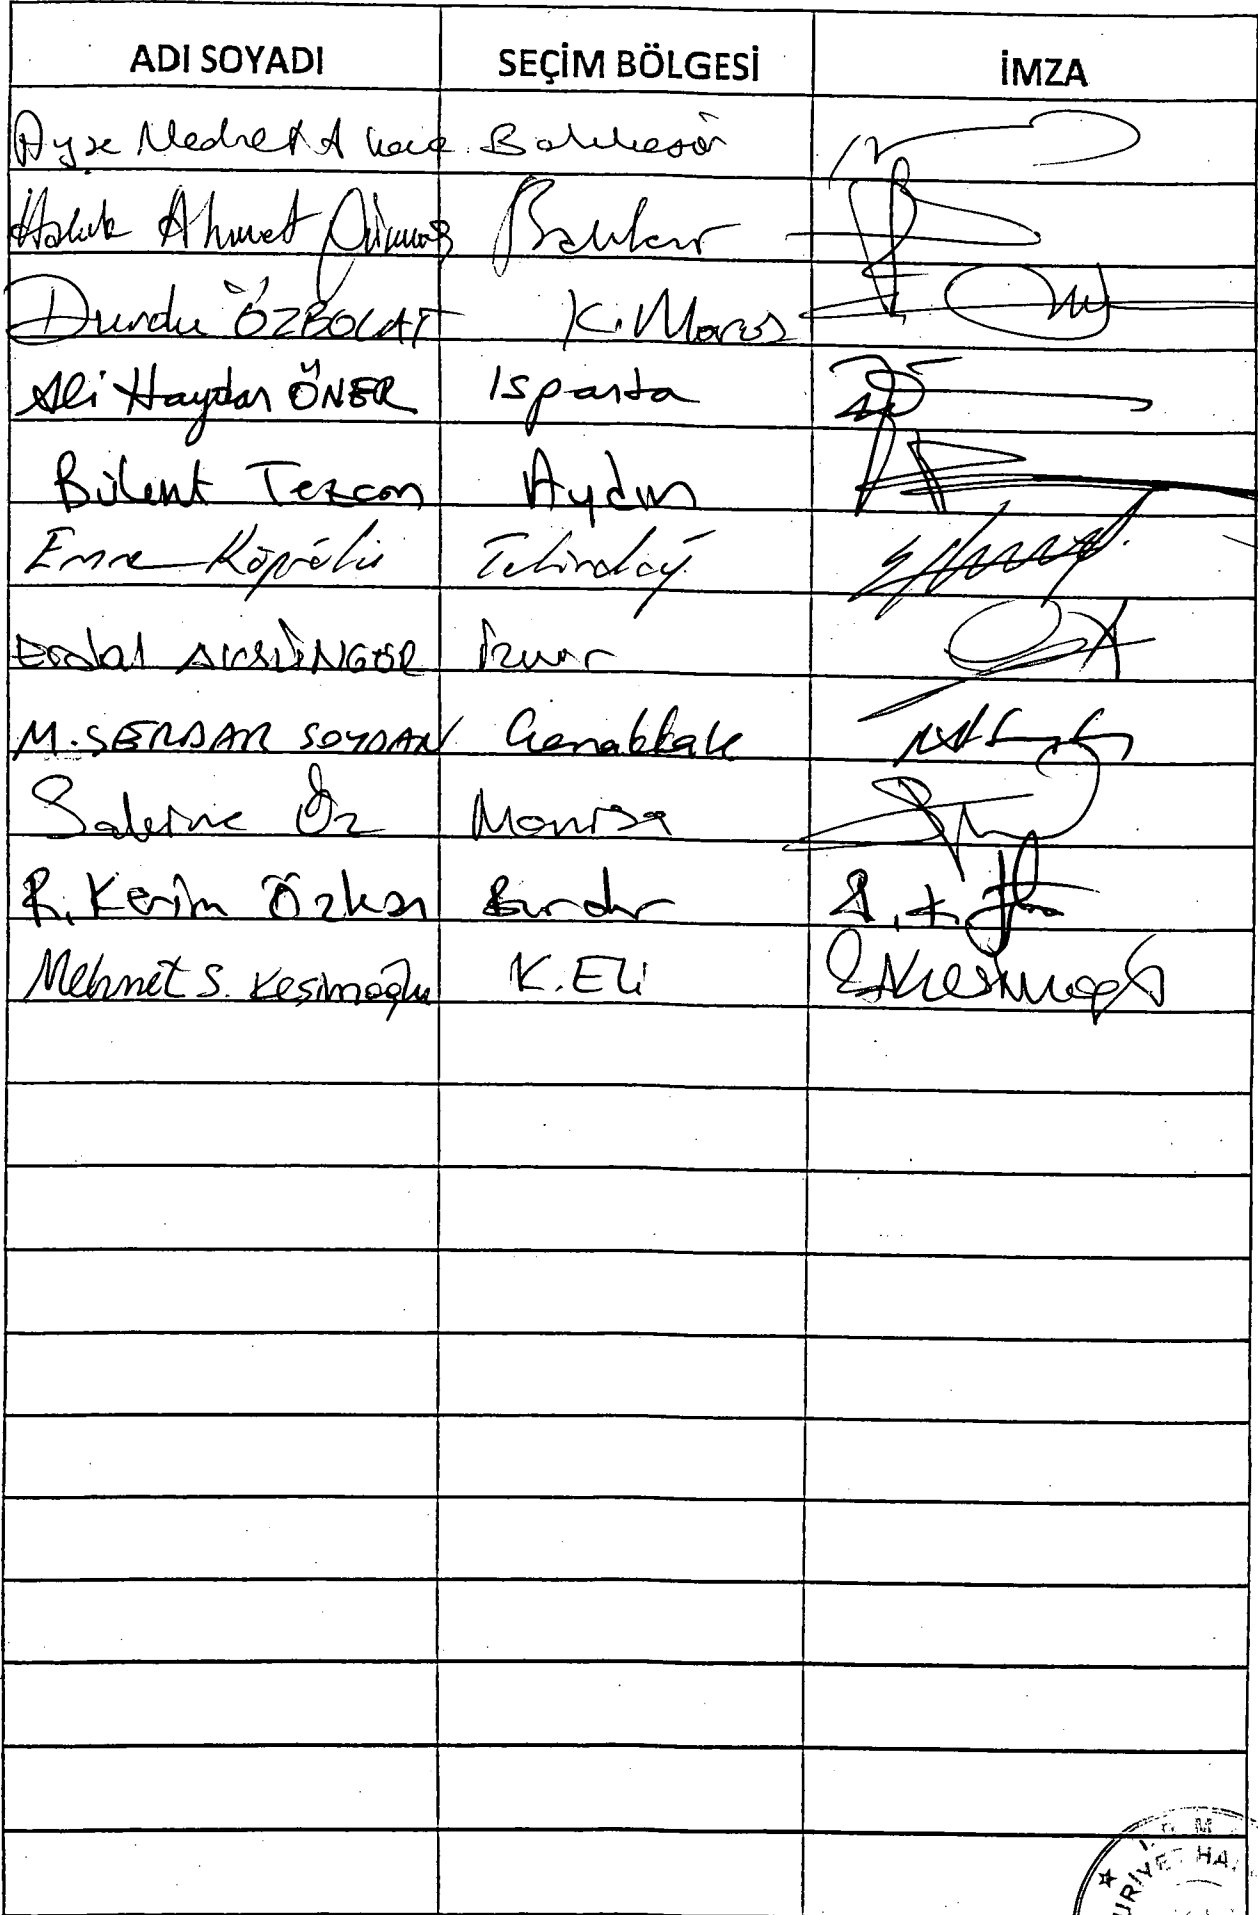 ADI SOYADI SEÇİM BÖLGESİ İMZA
Ayşe Nedret Akova Balıkesir
Haluk Ahmet Gümüş Balıkesir
Durdu ÖZBOLAT K. Maraş
Ali Haydar ÖNER Isparta
Bülent Tezcan Aydın
Emre Köprülü Tekirdağ
Erdal AKSÜNGER İzmir
M. SERDAR SOYDAN Çanakkale
Sakine Öz Manisa
R. Kerim Özkan Burdur
Mehmet S. Kesimoğlu K. ELİ